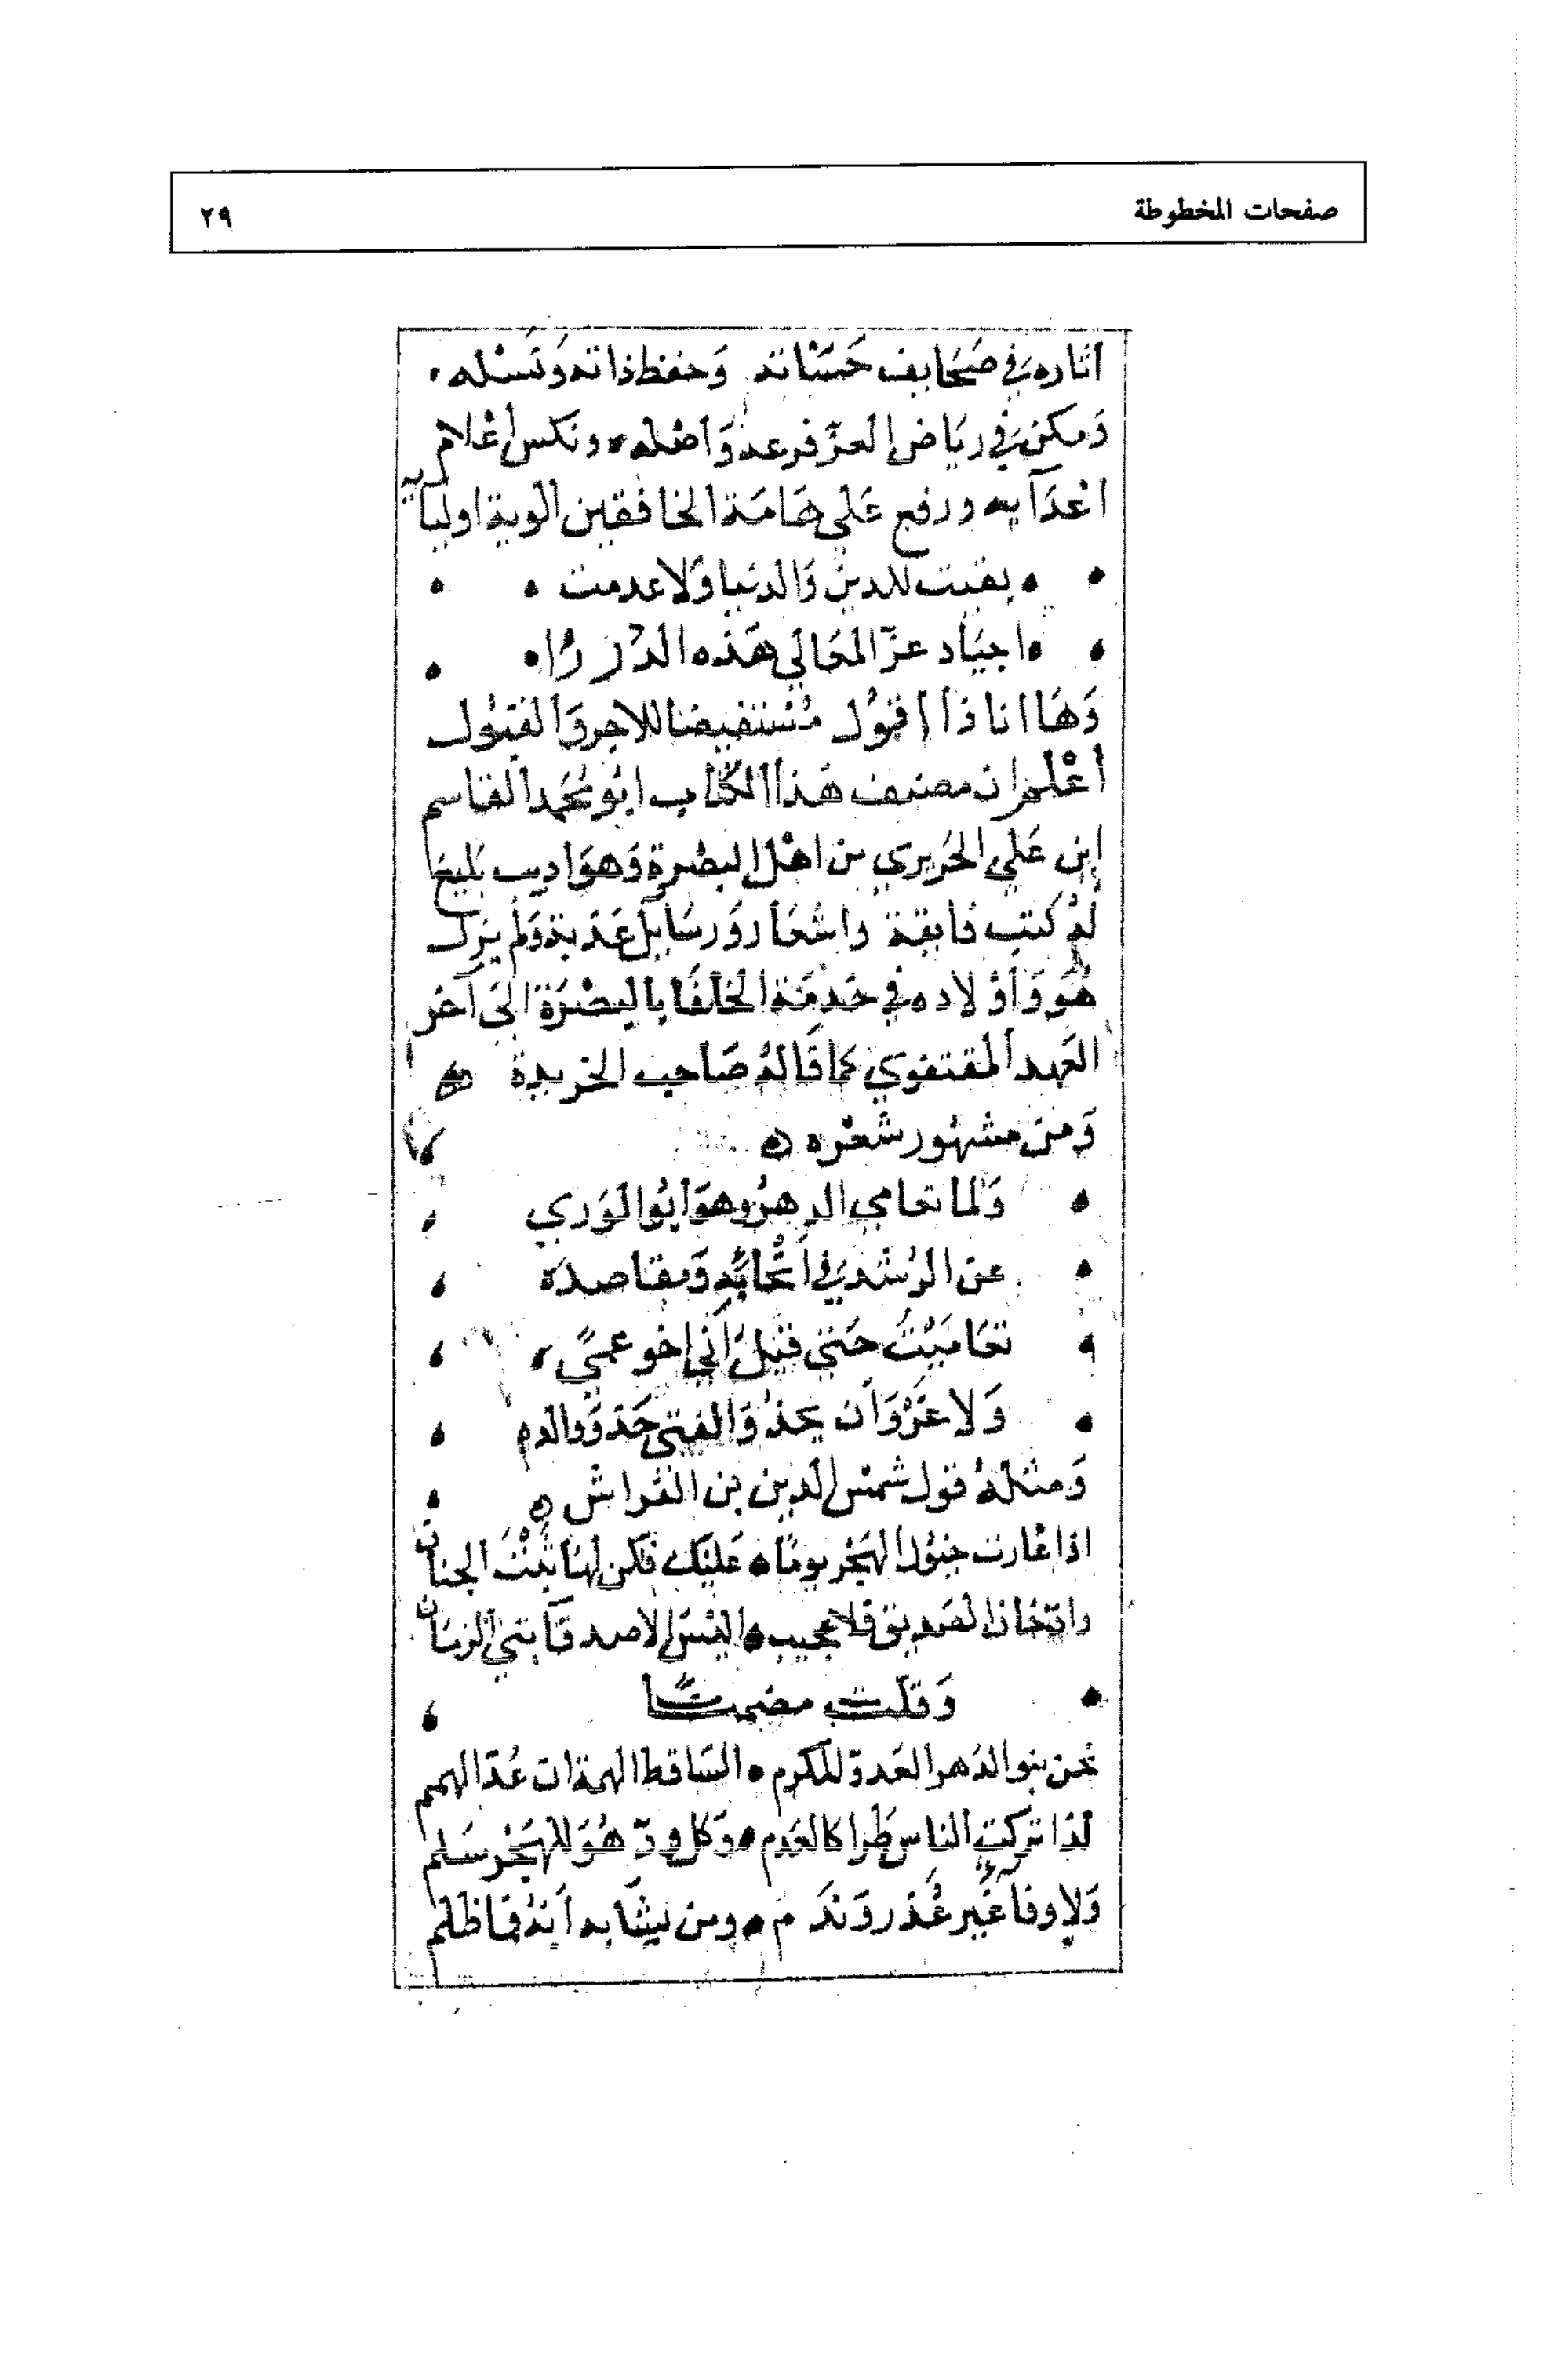 صفحات المخطوطة ٢٩
أثاره في صَحَايف حَسَنَاته وَحفظ ذاته وَنَسْله
وَمكن في ريَاض العزّ فرعه وَأصْله ونكس أعْلام
أعْدَآيه ورفع عَلي هَامَة الخافقين ألوية اوليآيه
بقيت للدين وَالدنيا وَلا عدمت
اجيَاد عزّ المَعَالي هَذه الدُرَرَا
وَهَا انا ذَا أقوُل مُسْتفيضا للاجر وَالقبُول
أعْلم ان مصنف هَذا الكتاب ابُو مُحَمد القاسم
ابن عَلي الحَريري من اهْل البصْرة وَهوَ اديب بَليغ
لهُ كتب فايقة واشْعَار وَرسَايل عَذبة وَلم يزل
هُوَ وَأوْلاده في خدمَة الخلفَا بالبصْرَة الىَ آخر
العَهد المقتفوي كما قَالهُ صَاحب الخريدة
وَمن مشهُور شعْره
وَلما تعامي الدهرُ وهوَ ابُو الوَري
عن الرُشْد في أنحَايه وَمقاصده
تعَاميْتُ حَتي قيْل اَني اخو عمىً
وَلا غَرْوَ أن يحذُوَ الفتى حَذوَ والده
وَمثلهُ قول شمسْ الدين بن الفرّاشْ
اذا غارت خيُول الهَجْر يومًا عَليْك فكن لهَا ثبْتَ الجنان
وان خان الصَديق فلا عجيب اليْسَ الاصدقَآ بني الزمَان
وَقلت مضمنًا
نحن بنو الدَهر العَدوّ للكرم السَاقط الهمة ان عُدّ الهمم
لذا تركت الناس طرا كالعَدم وَكل ودّ هُوَ للهَجْر سَلم
وَلا وفآ غَير غُدر وَندَم ومن يشَابه أبَهُ فمَا ظلم